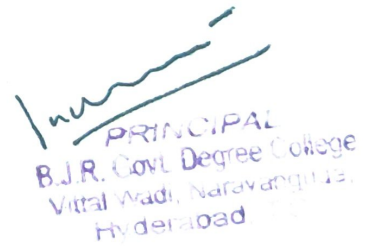 PRINCIPAL
B.J.R. Govt. Degree College
Vittal Wadi, Narayanguda,
Hyderabad